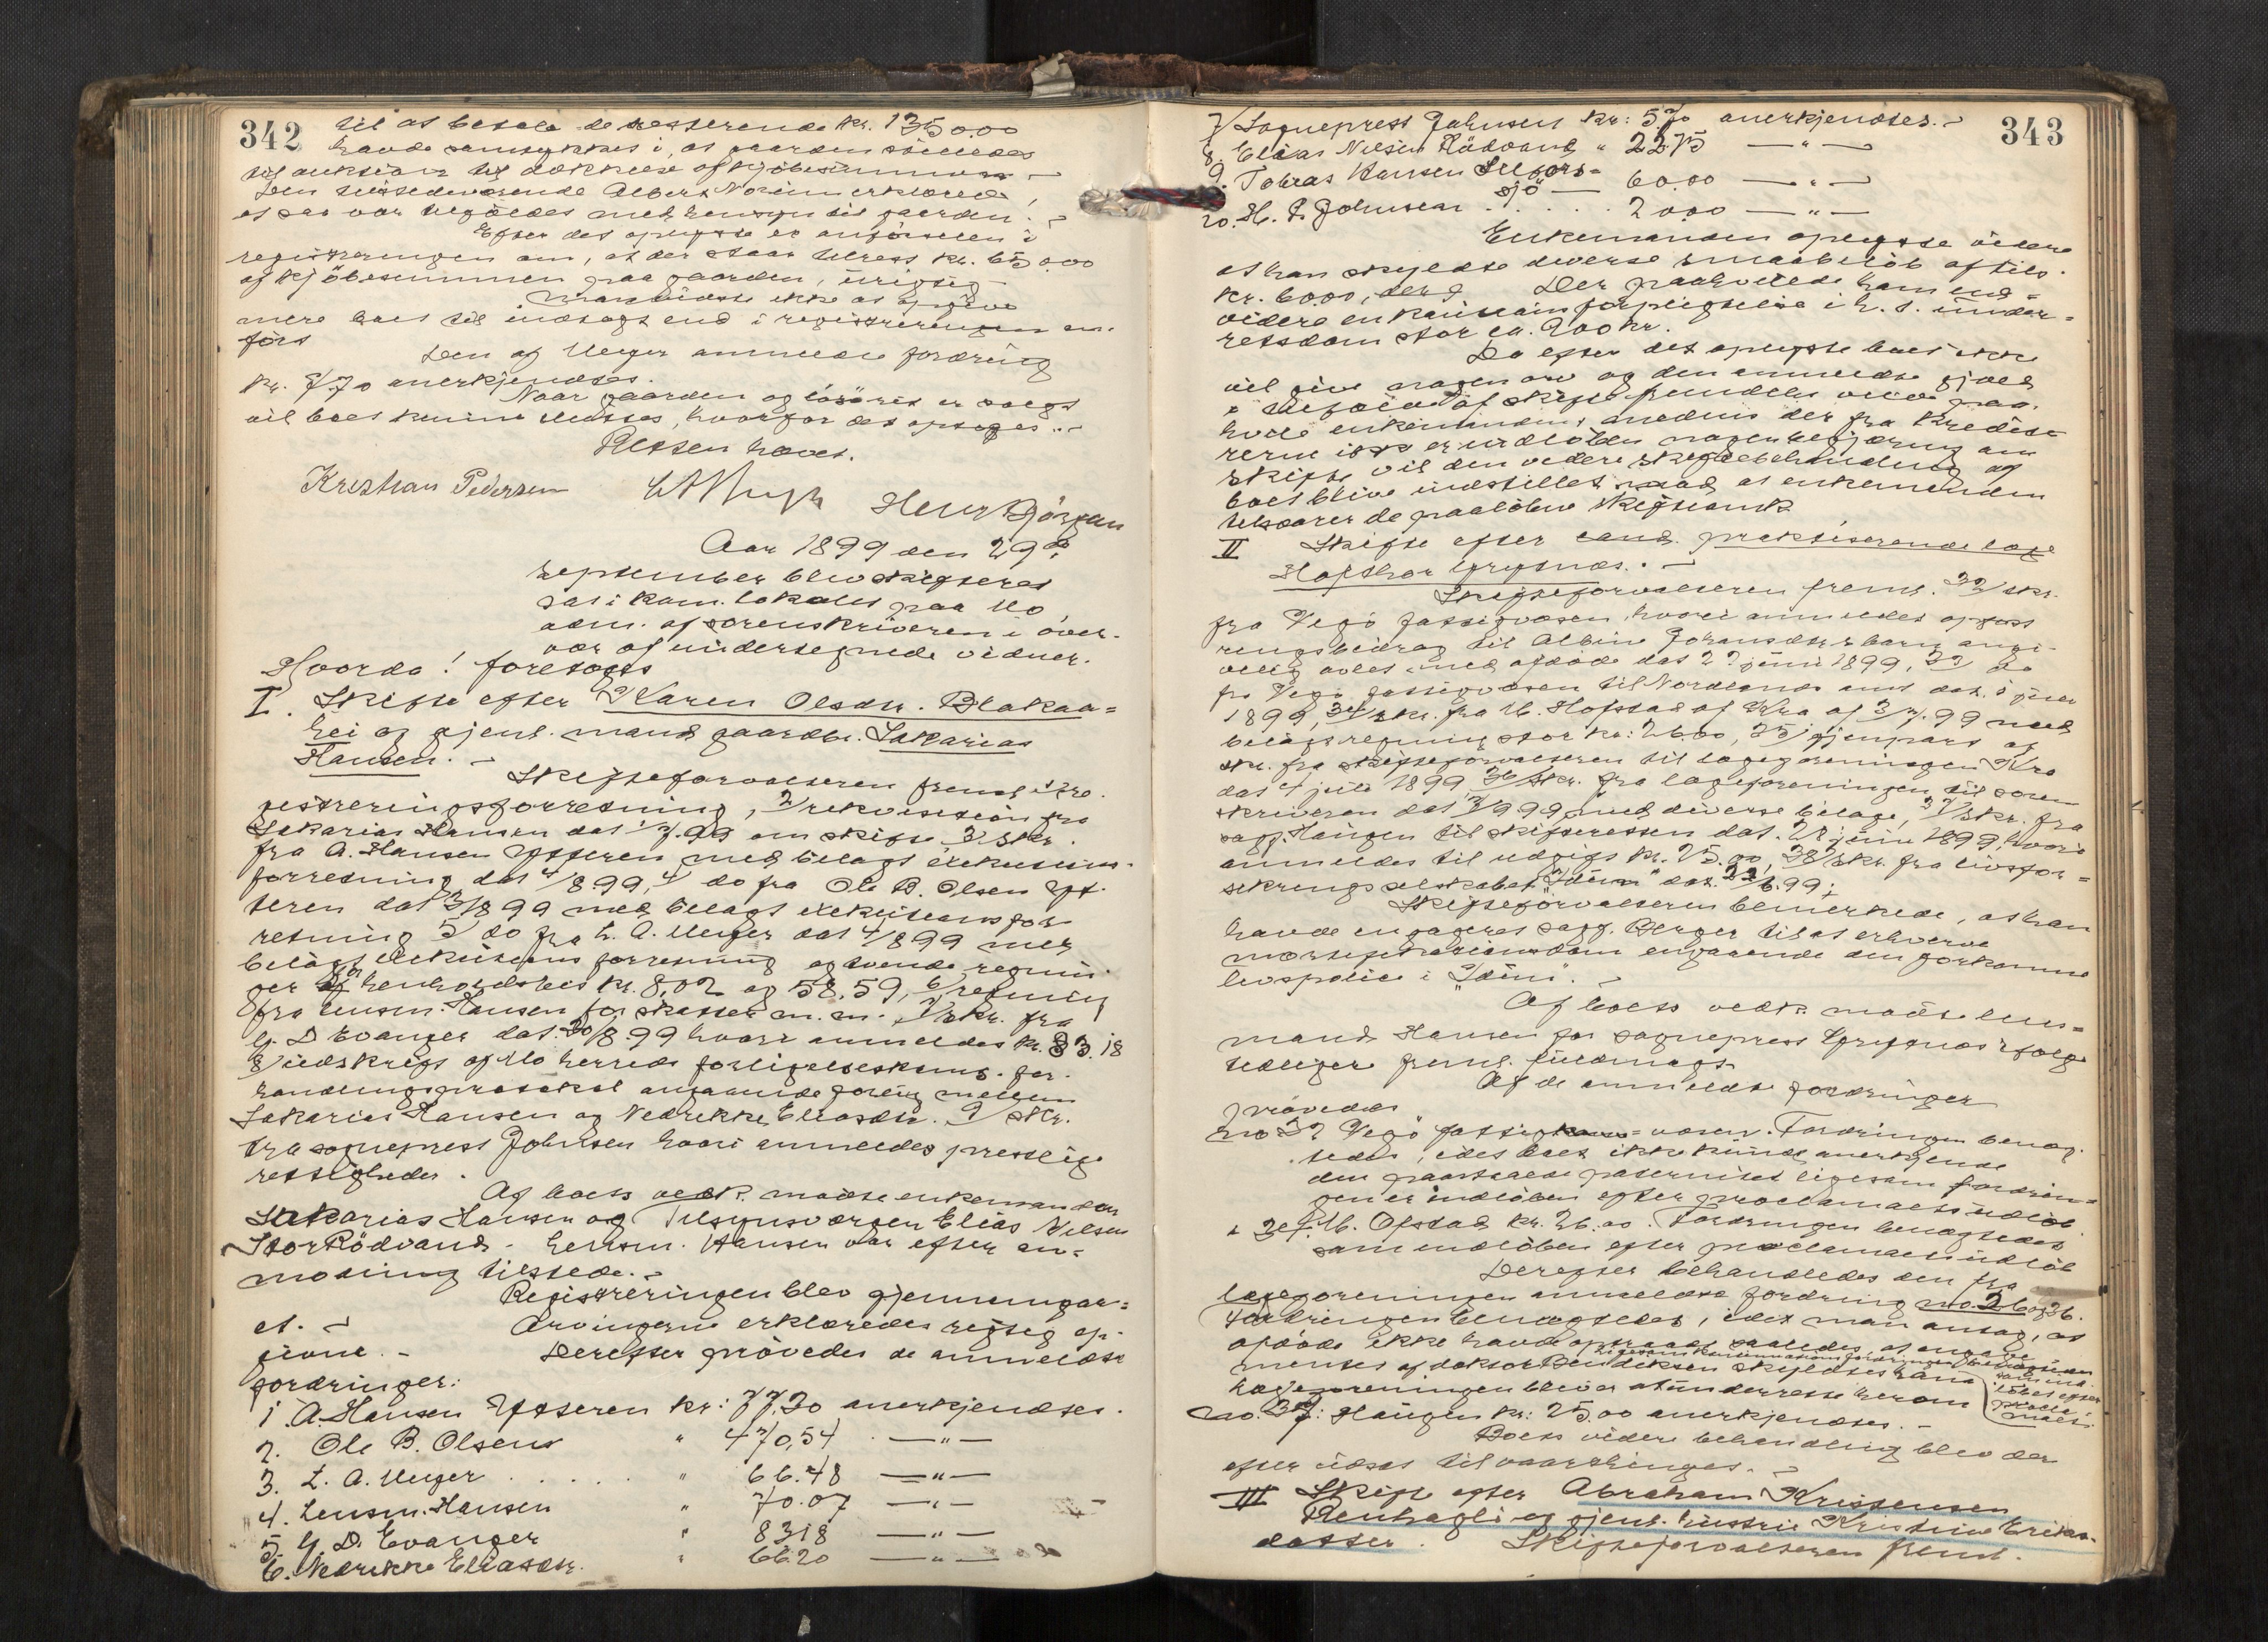 342
til at betale de resterende kr. 1350.00
havde samtykket i, at gaarden stilledes
til auktion til dækkelse af kjøbesummen.
Den tilstedeværende Albert erklærede,
at saa var tilfældet med hensyn til gaarden.
Efter det oplyste er anførselen i
registreringen om, at der staar til rest kr. 650.00
af kjøbesummen paa gaarden, urigtig
Man vidste ikke at opgive
mere boet til indtægt end i registreringen an-
ført
Den af Meyer anmeldte fordring
kr. 7.70 anerkjendtes.
Naar gaarden og løsøret er solgt
vil boet kunne sluttes, hvorfor det optages.
Retten hævet.
Kristian Pedersen
Aar 1899 den 29de
september blev skifteret
sat i kom. lokalet paa Mo,
adm. af sorenskriveren i over-
vær af undertegnede vidner.
Hvorda! foretoges
I. Skifte efter Karen Olsdtr. Blakaa-
hei og gjenl. mand gaardbr. Sakarias
Hansen.
Skifteforvalteren freml. 1/ re-
gistreringsforretning, 2/ rekvisition fra
Sakarias Hansen dat. 99 om skifte, 3/ skr.
fra A. Hansen Ytteren med belagt exekutions-
forretning dat 4/8 99, 4/ do fra Ole B. Olsen Yt-
teren dat 3/8 99 med belagt exekutionsfor-
retning 5/ do fra L. A. Meyer dat 4/8 99 med
belagt exekutions forretning og tvende regnin-
ger paa henholdsvis kr. 8,02 og 58,59, 6/ regning
fra lensm. Hansen for skatter m. m. 7/ skr. fra
G. D Evanger dat. 30/8.99 hvori anmeldes kr. 83.18
8/ udskrift af Mo herreds forligelseskoms. for-
handlingsprotokol angaaende forlig mellem
Sakarias Hansen og Nedrikke Eliasdtr. 9/ skr.
fra sognepræst Johnsen hvori anmeldes præstlige
rettigheder.
Af boets vedk. mødte enkemanden
Sakarias Hansen og Tilsynsværgen Elias Nilsen
Stor Rødvand. Lensm. Hansen var efter an-
modning tilstede.
Registreringen blev gjennemgaa-
et.
Arvingerne erklæredes rigtig op-
givne.
Derefter prøvedes de anmeldte
fordringer:
1 A. Hansen Ytteren kr: 77.20 anerkjendtes.
2. Ole B. Olsens " 470,54 — " —
3. L. A. Meyer . . . . . " 66.48 — " —
4. Lensm. Hansen " 70.07 — " —
5 G. D. Evanger " 83.18 — " —
6. Nedrikke Eliasdtr. " 66.20 — " —
343
7/ Sognepræst Johnsen kr: 5.70 anerkjendtes.
8. Elias Nilsen Rödvand " 22.75 — " —
9. Tobias Hansen Selfors- 60.00 — " —
10. H. P. Johnsen . . . . 20.00 — " —
Enkemanden oplyste videre
at han skyldte diverse smaabeløb af tils.
kr. 60.00, Der paahvilede ham end-
videre en kautionsforpligtelse i h. t. under-
retsdom stor ca. 900 kr.
Da efter det oplyste boet ikke
vil give nogen arv og den anmeldte gjæld
i tilfælde af skifte fremdeles vilde paa-
hvile enkemanden, medens der fra kredito-
rerne ikke er indløbet nogen begjæring om
skifte vil den videre skiftebehandling af
boet blive indstillet mod at enkemanden
tilsvarer de paaløbne skifteomk.
II Skifte efter cand. praktiserende læge
Hafthor Grytnæs.
Skifteforvalteren freml. 32/ skr.
fra Vegö fattigvæsen, hvori anmeldes opfost-
ringsbidrag til Albine Johansdtrs barn angi-
velig avlet med afdøde dat 27 juni 1899, 33/ do
fra Vegö fattigvæsen til Nordlands amt dat.
1899, 34/ skr. fra M. Hofstad af Kra af 99 med
belagt regning stor kr: 26.00, 35/ gjenpart af
skr. fra skifteforvalteren til lægeforeningen Kra
dat 4 juli 1899, 36/ skr. fra lægeforeningen til soren-
skriveren dat 99 med diverse bilage, 37/ skr. fra
sagf. Haugen til skifteretten dat. 28 juni 1899, hvori
anmeldes til udgift kr. 25.00, 38/ skr. fra livsfor-
sikringsselskabet "Idun" dat. 22/6.99;
Skifteforvalteren bemerkede, at han
havde engageret sagf. Berger til at erhverve
mortifikationsdom angaaende den forkomne
livspolice i "Idun".
Af boets vedk. mødte lens-
mand Hansen for sognepræst Grytnæs ifølge
tidligere freml. fuldmagt.
Af de anmeldte fordringer
prøvedes
no 32 Vegö fattig- væsen. Fordringen benæg-
tedes, idet boet ikke kunde anerkjende
den paastaaede paternitet ligesom fordrin-
gen er indløben efter proclamaets udløb
" 34. M. Ofstad kr. 26.00. Fordringen benægtedes
som indløben efter proclamaets udløb
Derefter behandledes den fra
lægeforeningen anmeldte fordring no. 36.
Fordringen benægtedes, idet man antog, at
afdøde ikke havde optraadt saaledes, at
af doktor Bendiksen skyldtes ham
Lægeforeningen bliver at underrette herom
no. 37: Haugen kr: 25.00 anerkjendtes.
Boets videre behandling blev der-
efter udsat til vaarthinget.
III Skifte efter Abraham Kristensen
og gjenl. hustru Kristine Eriks-
datter. Skifteforvalteren freml.